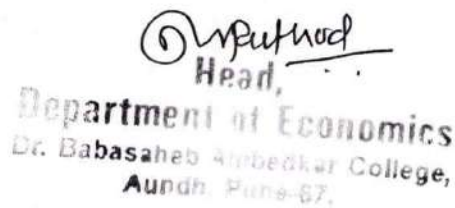 Head,
Department of Economics
Dr. Babasaheb Ambedkar College,
Aundh, Pune-67.